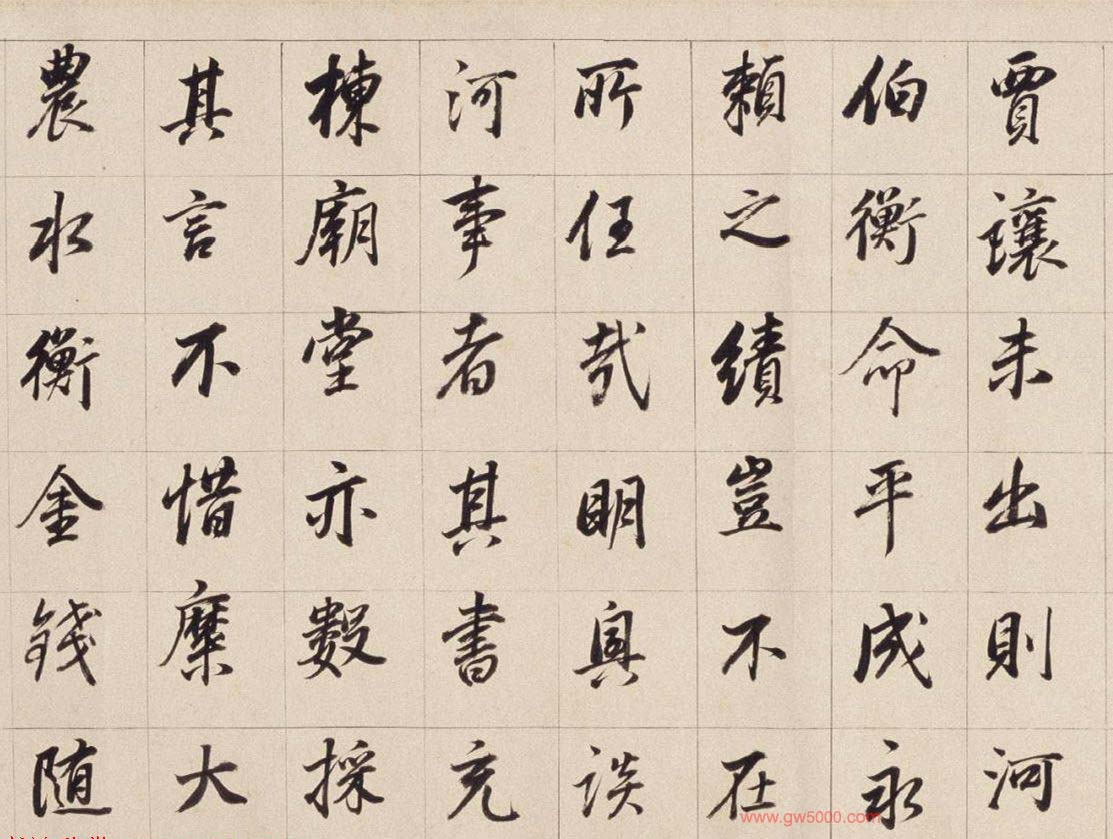 賈讓未出則河
伯衡命平成永
賴之績豈不在
所任哉明興談
河事者其書充
棟廟堂亦數採
其言不惜糜大
農水衡金錢随
www.gw5000.com